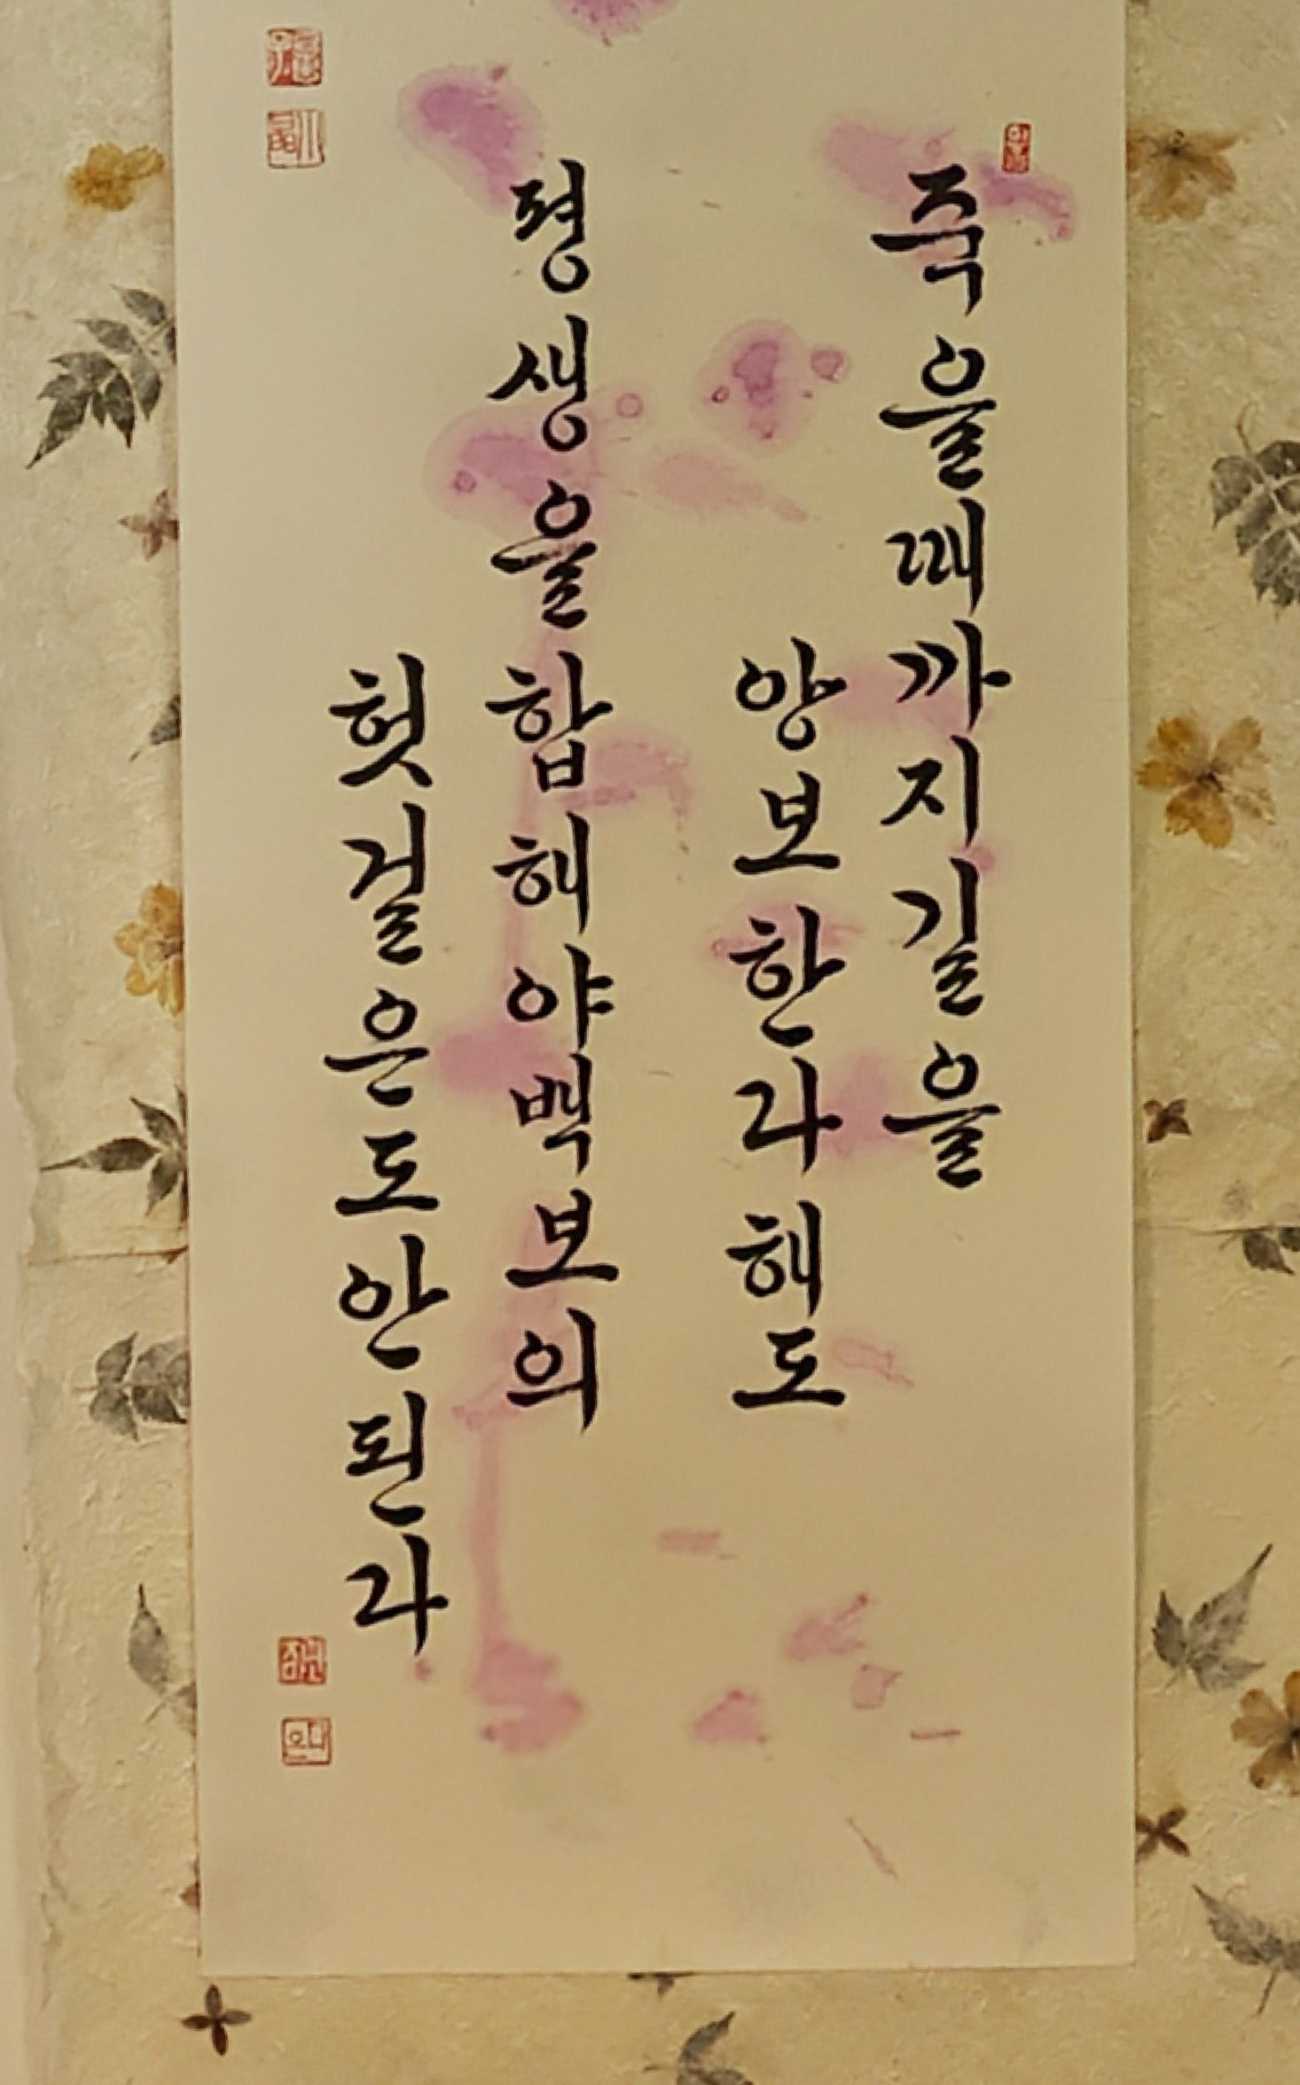 죽을때까지길을
양보한라해도
평생을합해야백보의
헛걸은도안된라